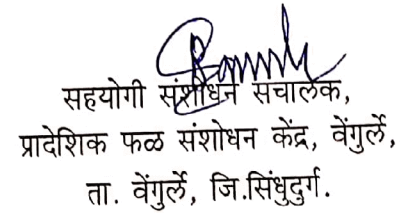 सहयोगी संशोधन संचालक,
प्रादेशिक फळ संशोधन केंद्र, वेंगुर्ले,
ता. वेंगुर्ले, जि.सिंधुदुर्ग.